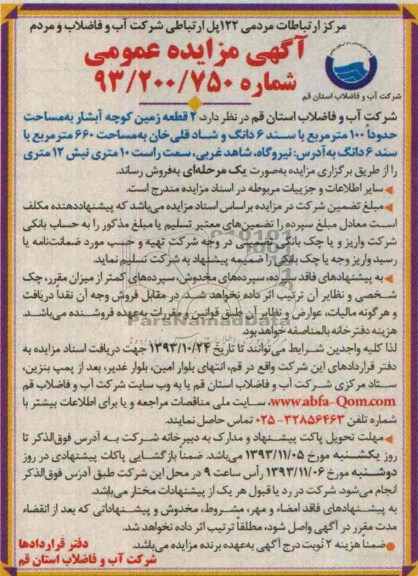 مرکز ارتباطات مردمی ۱۲۲ پل ارتباطی شرکت آب و فاضلاب و مردم
آگهی مزایده عمومی
شماره ۹۳/۲۰۰/۷۵۰
شرکت آب و فاضلاب استان قم
شرکت آب و فاضلاب استان قم در نظر دارد، ۲ قطعه زمین کوچه آبشار به‌مساحت
حدوداً ۱۰۰ متر مربع با سند ۶ دانگ و شاد قلی‌خان به‌مساحت ۶۶۰ متر مربع با
سند ۶ دانگ به‌آدرس: نیروگاه، شاهد غربی، سمت راست ۱۰ متری نبش ۱۲ متری
را از طریق برگزاری مزایده به‌صورت یک مرحله‌ای به‌فروش رساند.
سایر اطلاعات و جزییات مربوطه در اسناد مزایده مندرج است.
مبلغ تضمین شرکت در مزایده براساس اسناد مزایده می‌باشد که پیشنهاددهنده مکلف
است معادل مبلغ سپرده را تضمین‌های معتبر تسلیم یا مبلغ مذکور را به حساب بانکی
شرکت واریز و یا چک بانکی تضمینی در وجه شرکت تهیه و حسب مورد ضمانت‌نامه یا
رسید واریز وجه یا چک بانکی را ضمیمه پیشنهاد به شرکت تسلیم نماید.
به پیشنهادهای فاقد سپرده، سپرده‌های مخدوش، سپرده‌های کمتر از میزان مقرر، چک
شخصی و نظایر آن ترتیب اثر داده نخواهد شد. در مقابل فروش وجه آن نقداً دریافت
و هرگونه مالیات، عوارض و نظایر آن طبق قوانین و مقررات به‌عهده فروشنده می‌باشد.
هزینه دفترخانه بالمناصفه خواهد بود.
لذا کلیه واجدین شرایط می‌توانند تا تاریخ ۱۳۹۳/۱۰/۲۴ جهت دریافت اسناد مزایده به
دفتر قراردادهای این شرکت واقع در قم، انتهای بلوار امین، بلوار غدیر، بعد از پمپ بنزین،
ستاد مرکزی شرکت آب و فاضلاب استان قم یا به وب سایت شرکت آب و فاضلاب
www.abfa-Qom.com، سایت ملی مناقصات مراجعه و یا برای اطلاعات بیشتر با
شماره تلفن ۳۲۸۵۶۴۶۳-۰۲۵ تماس حاصل نمایند.
مهلت تحویل پاکت پیشنهاد و مدارک به دبیرخانه شرکت به آدرس فوق‌الذکر تا
روز یکشنبه مورخ ۱۳۹۳/۱۱/۰۵ می‌باشد. ضمنا بازگشایی پاکات پیشنهادی در روز
دوشنبه مورخ ۱۳۹۳/۱۱/۰۶ رأس ساعت ۹ در محل این شرکت طبق آدرس فوق‌الذکر
انجام می‌شود. شرکت در رد یا قبول هر یک از پیشنهادات مختار می‌باشد.
به پیشنهادهای فاقد امضاء و مهر، مشروط، مخدوش و پیشنهاداتی که بعد از انقضاء
مدت مقرر در آگهی واصل شود، مطلقا ترتیب اثر داده نخواهد شد.
ضمنا هزینه ۲ نوبت درج آگهی به‌عهده برنده مزایده می‌باشد.
دفتر قراردادها
شرکت آب و فاضلاب استان قم
ParsNamadData